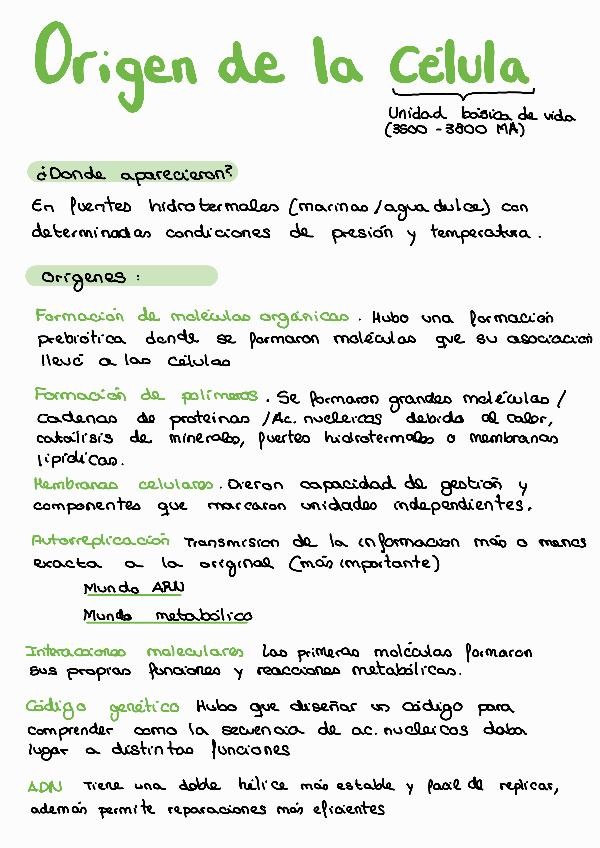 Origen de la célula
Unidad básica de vida
(3500 - 3800 MA)
¿Donde aparecieron?
En fuentes hidrotermales (marinas/agua dulce) con
determinadas condiciones de presión y temperatura.
Orígenes:
Formación de moléculas orgánicas. Hubo una formación
prebiótica donde se formaron moléculas que su asociación
llevó a las células
Formación de polímeros. Se formaron grandes moléculas /
cadenas de proteinas /Ac. nucleicos debido al calor,
catálisis de minerales, fuertes hidrotermales o membranas
lipídicas.
Membranas celulares. Dieron capacidad de gestión y
componentes que marcaron unidades independientes.
Autorreplicación Transmision de la informacion más o menos
exacta a la original (más importante)
Mundo ARN
Mundo metabólico
Interacciones moleculares Las primeras moléculas formaron
sus propias funciones y reacciones metabólicas.
Código genético Hubo que diseñar un código para
comprender como la secuencia de ac. nucleicos daba
lugar a distintas funciones
ADN Tiene una doble hélice más estable y facil de replicar,
además permite reparaciones más eficientes